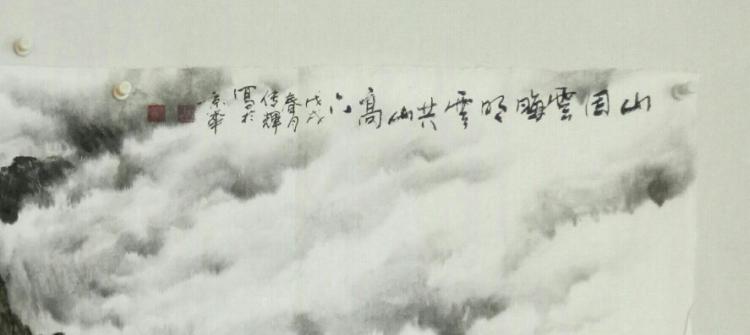 山因雲晦明雲共山高下
戊戌
春月
传輝
寫於
京華